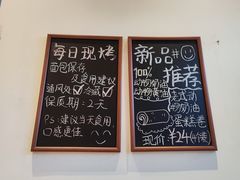 每日现烤
面包保存
及食用建议
通风处 冷藏
保质期：2天
P.S:建议当天食用
口感更佳
新品#
推荐
100%
动物奶油
动物黄油
蛋糕卷
现价 ¥24